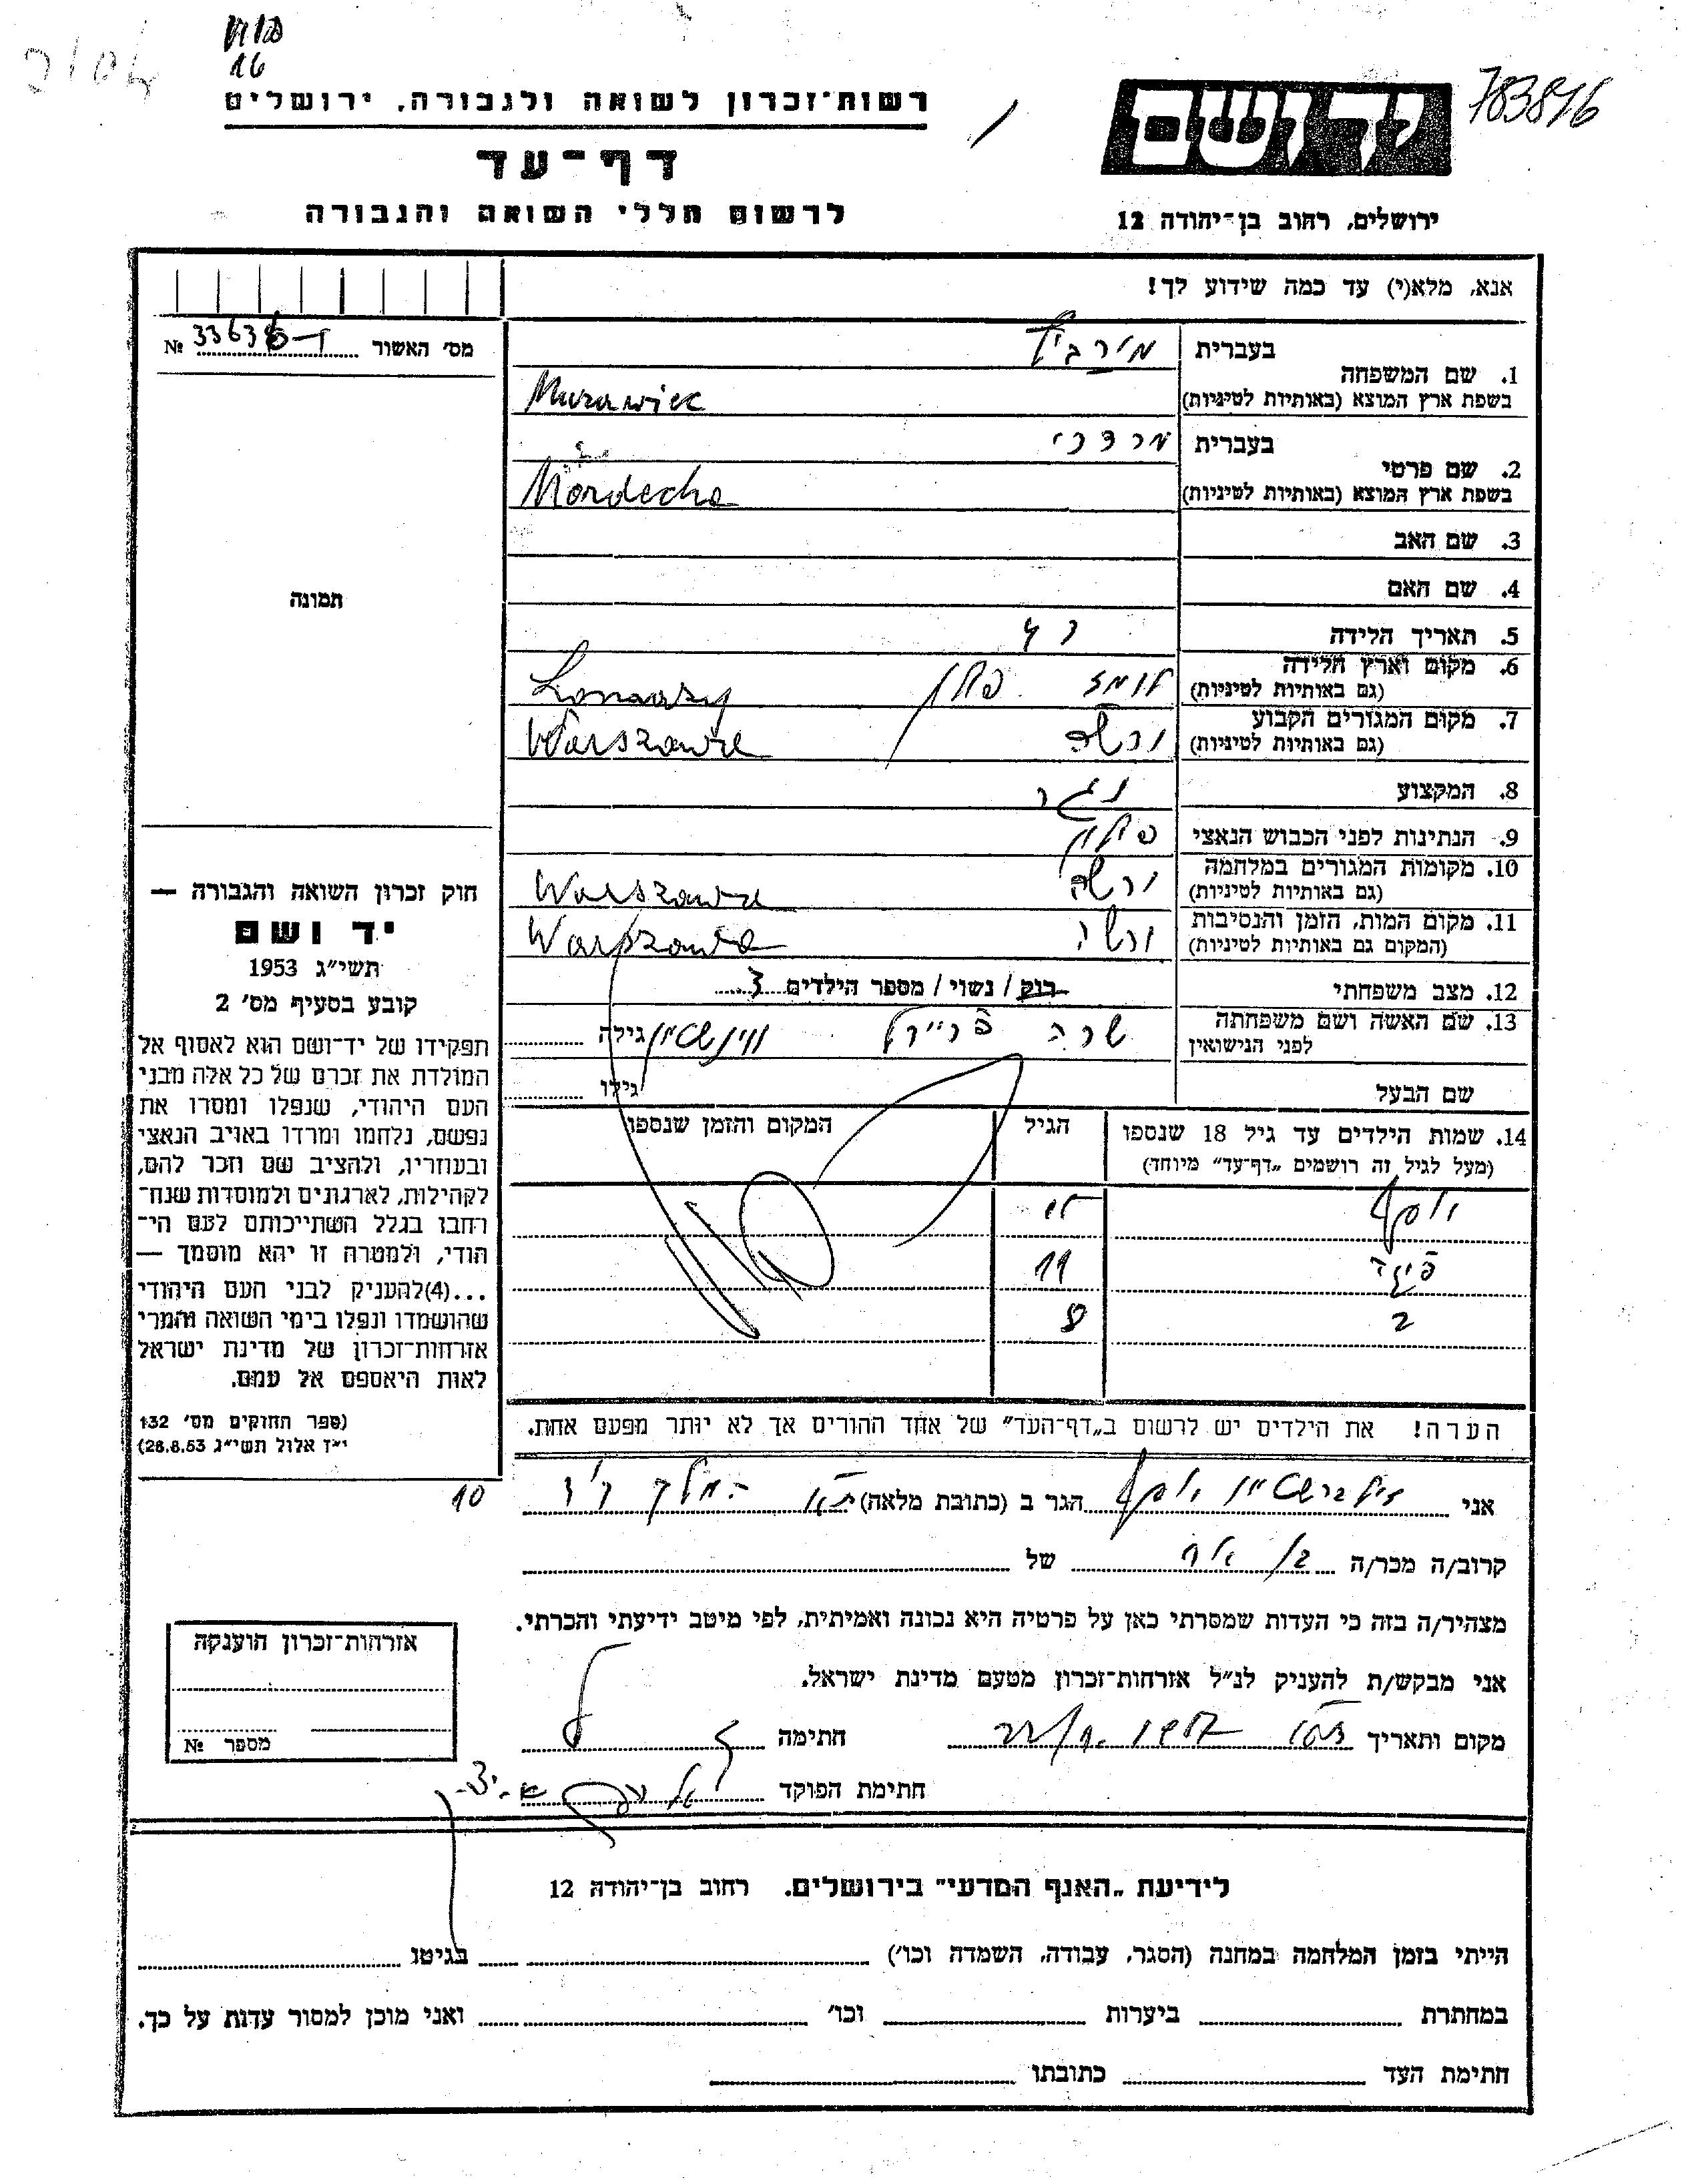 783896
16
רשות־זכרון לשואה ולגבורה, ירושלים
דף־עד
לרשום חללי השואה והגבורה
ידושם
ירושלים, רחוב בן־יהודה 12
אנא, מלא(י) עד כמה שידוע לך!
מס׳ האשור № 33636
1. שם המשפחה
בעברית
בשפת ארץ המוצא (באותיות לטיניות) Murawiec
2. שם פרטי
בעברית מרדכי
בשפת ארץ המוצא (באותיות לטיניות) Mordecha
3. שם האב
4. שם האם
תמונה
5. תאריך הלידה
6. מקום וארץ הלידה
(גם באותיות לטיניות) פולין
7. מקום המגורים הקבוע
(גם באותיות לטיניות) ורשה Warszawa
8. המקצוע נגר
9. הנתינות לפני הכבוש הנאצי פולין
10. מקומות המגורים במלחמה
(גם באותיות לטיניות) ורשה Warszawa
11. מקום המות, הזמן והנסיבות
(המקום גם באותיות לטיניות) ורשה Warszawa
12. מצב משפחתי רוק / נשוי / מספר הילדים 3
13. שם האשה ושם משפחתה
לפני הנישואין שרה גילה
שם הבעל גילו
14. שמות הילדים עד גיל 18 שנספו
(מעל לגיל זה רושמים „דף־עד״ מיוחד)
הגיל
המקום והזמן שנספו
יוסף
11
2 8
הערה! את הילדים יש לרשום ב„דף־העד״ של אחד ההורים אך לא יותר מפעם אחת.
חוק זכרון השואה והגבורה —
יד ושם
תשי״ג 1953
קובע בסעיף מס׳ 2
תפקידו של יד־ושם הוא לאסוף אל
המולדת את זכרם של כל אלה מבני
העם היהודי, שנפלו ומסרו את
נפשם, נלחמו ומרדו באויב הנאצי
ובעוזריו, ולהציב שם וזכר להם,
לקהילות, לארגונים ולמוסדות שנח־
רחבו בגלל השתייכותם לעם הי־
הודי, ולמטרה זו יהא מוסמך —
...(4)להעניק לבני העם היהודי
שהושמדו ונפלו בימי השואה והמרי
אזרחות־זכרון של מדינת ישראל
לאות היאספם אל עמם.
(ספר החוקים מס׳ 132
י״ז אלול תשי״ג 28.8.53)
10
אני זילברשטיין יוסף הגר ב (כתובת מלאה)
קרוב/ה מכר/ה של
מצהיר/ה בזה כי העדות שמסרתי כאן על פרטיה היא נכונה ואמיתית, לפי מיטב ידיעתי והכרתי.
אני מבקש/ת להעניק לנ״ל אזרחות־זכרון מטעם מדינת ישראל.
מקום ותאריך חתימה
חתימת הפוקד
אזרחות־זכרון הוענקה
מספר №
לידיעת „האגף המדעי״ בירושלים. רחוב בן־יהודה 12
הייתי בזמן המלחמה במחנה (הסגר, עבודה, השמדה וכו׳) בגיטו
במחתרת ביערות וכו׳ ואני מוכן למסור עדות על כך.
חתימת העד כתובתו